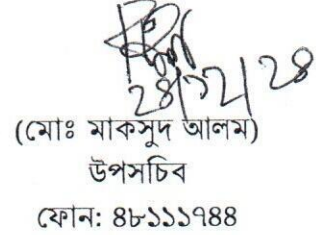 ২৪/১২/২৪
(মোঃ মাকসুদ আলম)
উপসচিব
ফোন: ৪৮১১১৭৪৪